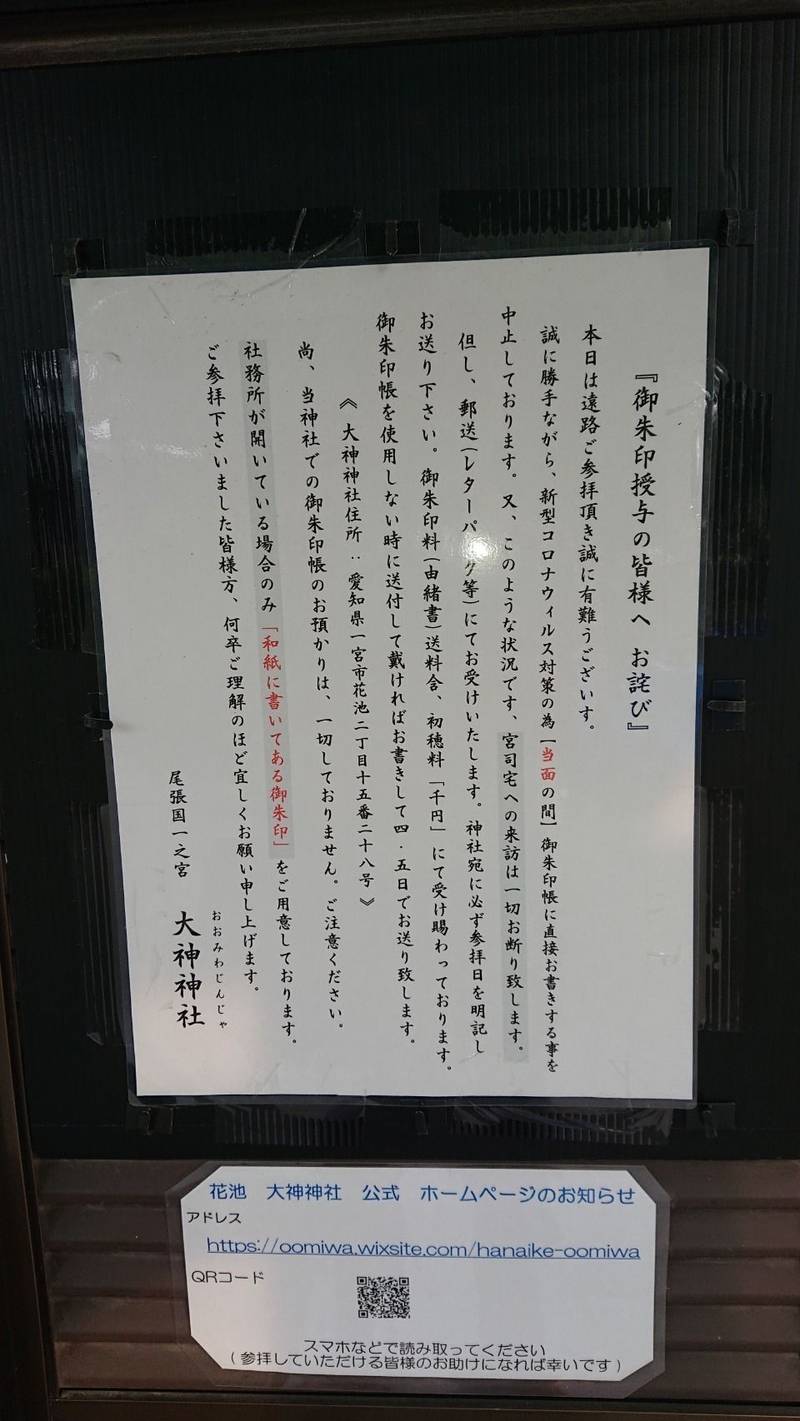 『御朱印授与の皆様へ お詫び』
本日は遠路ご参拝頂き誠に有難うございす。
誠に勝手ながら、新型コロナウィルス対策の為【当面の間】御朱印帳に直接お書きする事を
中止しております。又、このような状況です、宮司宅への来訪は一切お断り致します。
但し、郵送(レターパック等)にてお受けいたします。神社宛に必ず参拝日を明記し
お送り下さい。御朱印料(由緒書)送料含、初穂料「千円」にて受け賜わっております。
御朱印帳を使用しない時に送付して戴ければお書きして四・五日でお送り致します。
《 大神神社住所:愛知県一宮市花池二丁目十五番二十八号 》
尚、当神社での御朱印帳のお預かりは、一切しておりません。ご注意ください。
社務所が開いている場合のみ「和紙に書いてある御朱印」をご用意しております。
ご参拝下さいました皆様方、何卒ご理解のほど宜しくお願い申し上げます。
尾張国一之宮 大神神社
おおみわじんじゃ
花池 大神神社 公式 ホームページのお知らせ
アドレス
https://oomiwa.wixsite.com/hanaike-oomiwa
QRコード
スマホなどで読み取ってください
(参拝していただける皆様のお助けになれば幸いです)